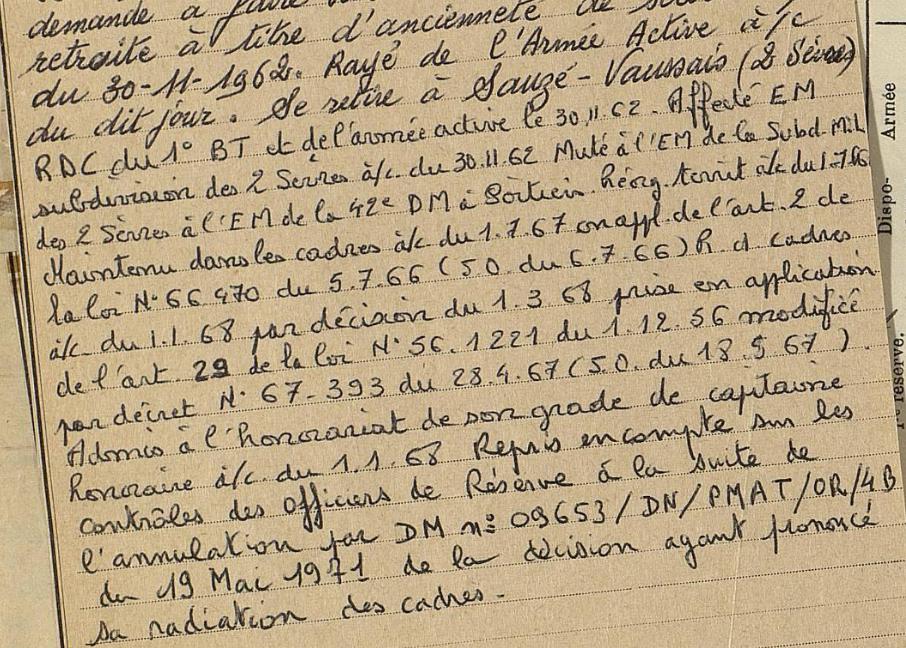 demande à faire
retraite à titre d'ancienneté de
du 30-11-1962. Rayé de l'Armée Active à/c
du dit jour. Se retire à Sauzé-Vaussais (2 Sèvres)
RDC du 1° BT et de l'armée active le 30.11.62. Affecté EM
subdivision des 2 Sèvres à/c. du 30.11.62 Muté à l'EM de la Subd. Mil
des 2 Sèvres à l'EM de la 42e DM à Poitiers. Réorg. territ à/c du 1.7.66
Maintenu dans les cadres à/c du 1.7.67 en appl. de l'art. 2 de
la loi N° 66 470 du 5.7.66 (50. du 6.7.66) R d cadres
à/c. du 1.1.68 par décision du 1.3.68 prise en application
de l'art. 29 de la loi N° 56.1221 du 1.12.56 modifiée
par décret N° 67-393 du 28.4.67 (50. du 18.5 67).
Admis à l'honorariat de son grade de capitaine
honoraire à/c. du 1.1.68 Repris en compte sur les
contrôles des Officiers de Réserve à la suite de
l'annulation par DM n° 09653/DN/PMAT/OR/4B
du 19 Mai 1971 de la décision ayant prononcé
sa radiation des cadres.
Armée
Dispo-
réserve.